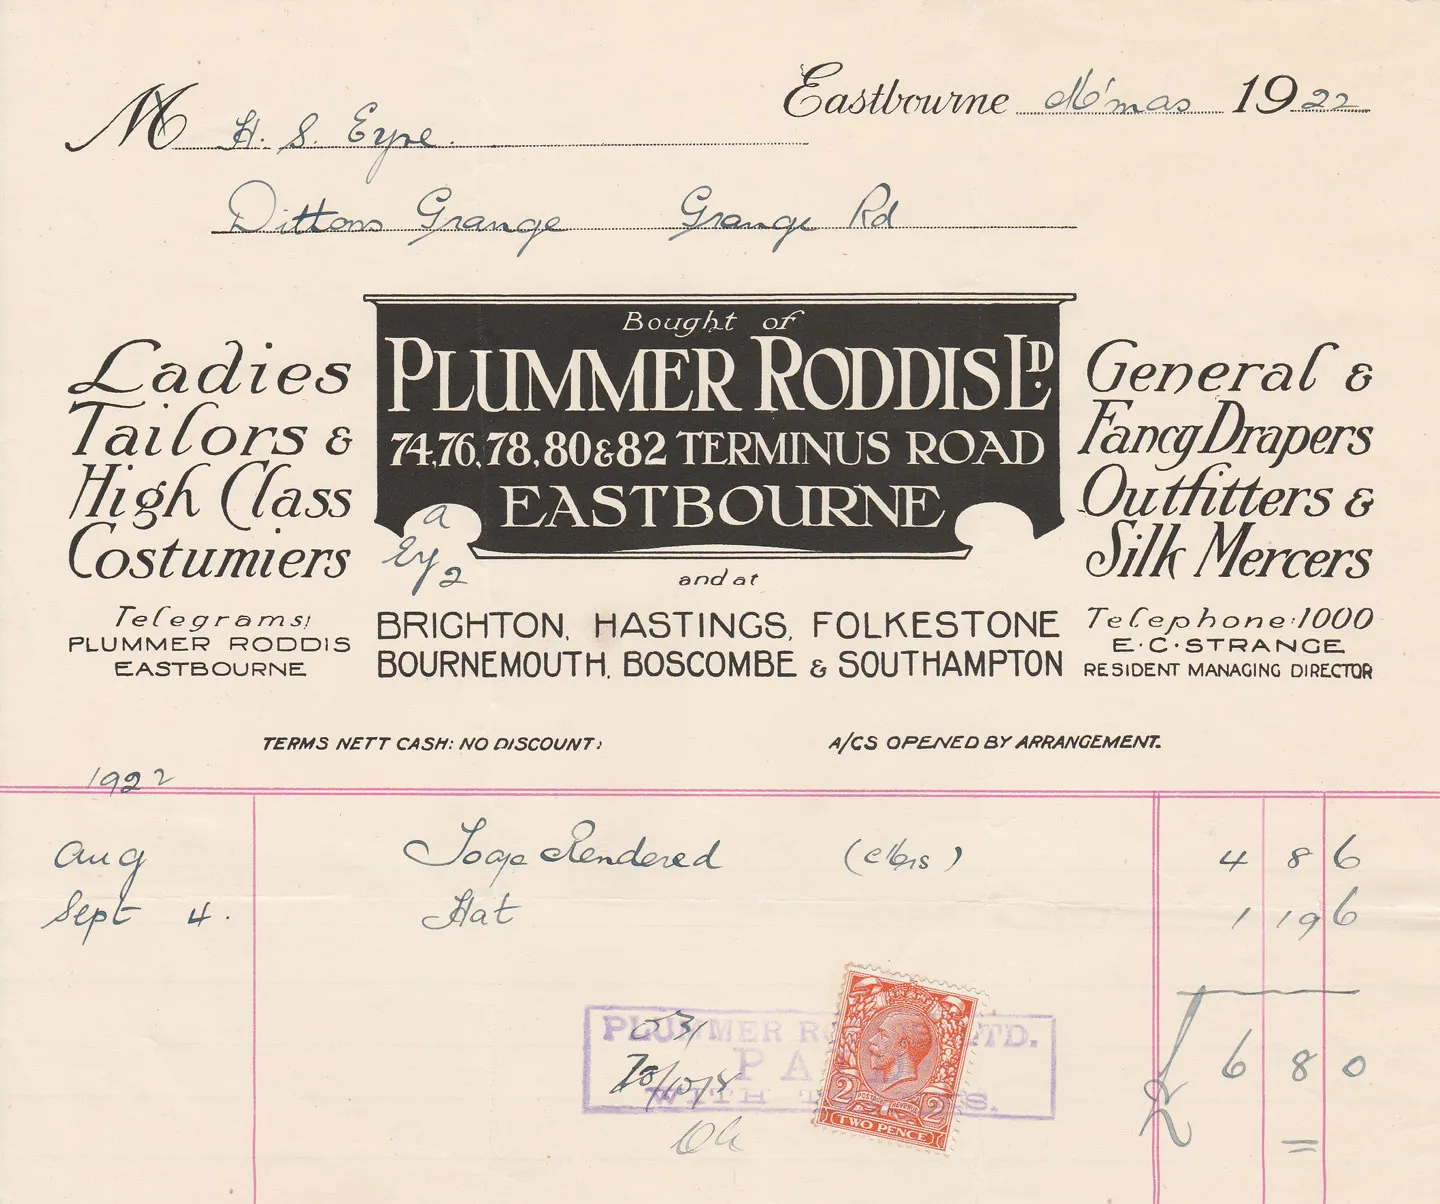 Eastbourne M'mas 1922
M H. S. Eyre.
Dittons Grange Grange Rd
Bought of
PLUMMER RODDIS LD.
74, 76, 78, 80 & 82 TERMINUS ROAD
EASTBOURNE
Ladies
Tailors &
High Class
Costumiers
General &
Fancy Drapers
Outfitters &
Silk Mercers
a
Ey 2
and at
BRIGHTON, HASTINGS, FOLKESTONE
BOURNEMOUTH, BOSCOMBE & SOUTHAMPTON
Telegrams:
PLUMMER RODDIS
EASTBOURNE
Telephone: 1000
E. C. STRANGE
RESIDENT MANAGING DIRECTOR
TERMS NETT CASH: NO DISCOUNT:
A/CS OPENED BY ARRANGEMENT.
1922
Aug Rendered 4 8 6
Sept 4. Hat 1 19 6
£ 6 8 0
PLUMMER LTD.
PA
WITH
2 2
TWO PENCE